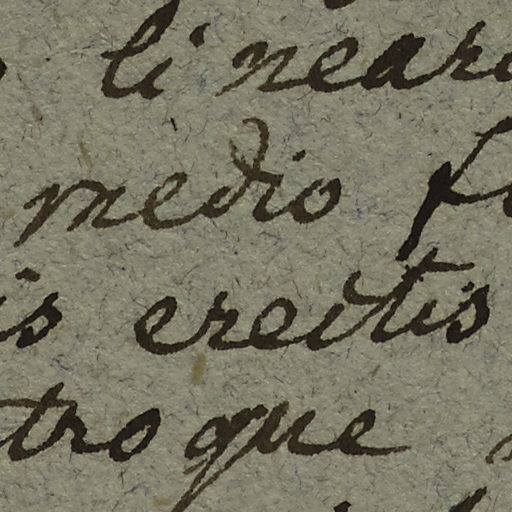 linear
medio
is erectis
troque